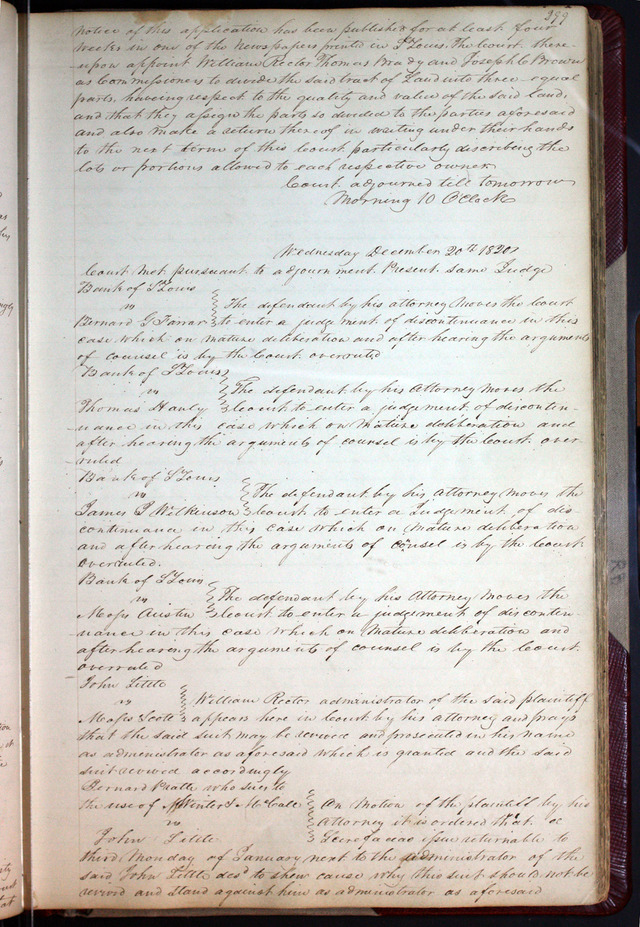 299
notice of this application has been published for at least four
weeks in one of the newspapers printed in St Louis. The Court there-
upon appoint William Rector Thomas Brady and Joseph C Brown
as Commissioners to divide the said tract of Land into three equal
parts, haveing respect to the quality and value of the said Land,
and that they assign the parts so divided to the parties aforesaid
and also make a return thereof in writing under their hands
to the next term of this Court particularly discribeing the
lots or portions allowed to each respective owner
Court adjourned till tomorrow
Morning 10 O'Clock
Wednesday December 20th 1820
Court met pursuant to adjournment. Present same Judge
Bank of St Louis
vs
The defendant by his attorney moves the Court
Bernard G Farrar to enter a judgement of discontinuance in this
case which on mature deliberation and after hearing the arguments
of counsel is by the Court overruled
Bank of St Louis
vs
The defendant by his Attorney moves the
Thomas Hanly Court to enter a judgement of discontin-
uance in this case which on Mature deliberation and
after hearing the arguments of counsel is by the Court over
ruled
Bank of St Louis
vs
The defendant by his Attorney moves the
James P Wilkinson Court to enter a Judgement of dis-
continuance in this case which on Mature deliberation
and after hearing the arguments of counsel is by the Court
overruled.
Bank of St Louis
vs
The defendant by his Attorney moves the
Moses Austin Court to enter a judgement of discontin-
uance in this case which on Mature deliberation and
after hearing the arguments of counsel is by the Court
overruled
John Little
vs
William Rector administrator of the said plaintiff
Moses Scott appears here in Court by his attorney and prays
that the said suit may be revived and prosecuted in his name
as administrator as aforesaid which is granted and the said
suit revived accordingly
Bernard Pratte who sues to
the use of McVenter & McCale On Motion of the plaintiff by his
vs Attorney it is ordered that a
John Little Scire facias issue returnable to
third Monday of January next to the administrator of the
said John Little decd to shew cause why this suit should not be
revived and stand against him as administrator as aforesaid